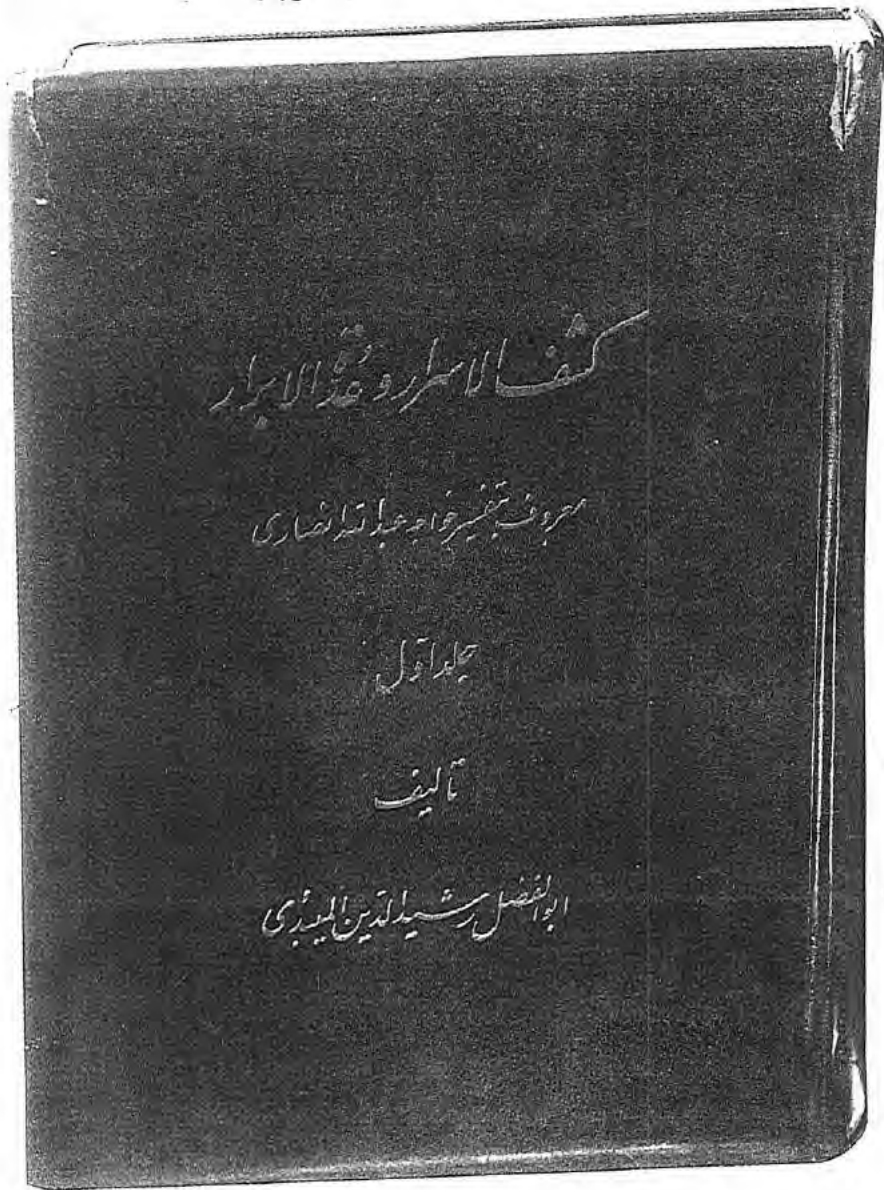 كشف الاسرار و عدة الابرار
معروف بتفسیر خواجه عبدالله انصاری
جلد اول
تألیف
ابوالفضل رشیدالدین المیبدی